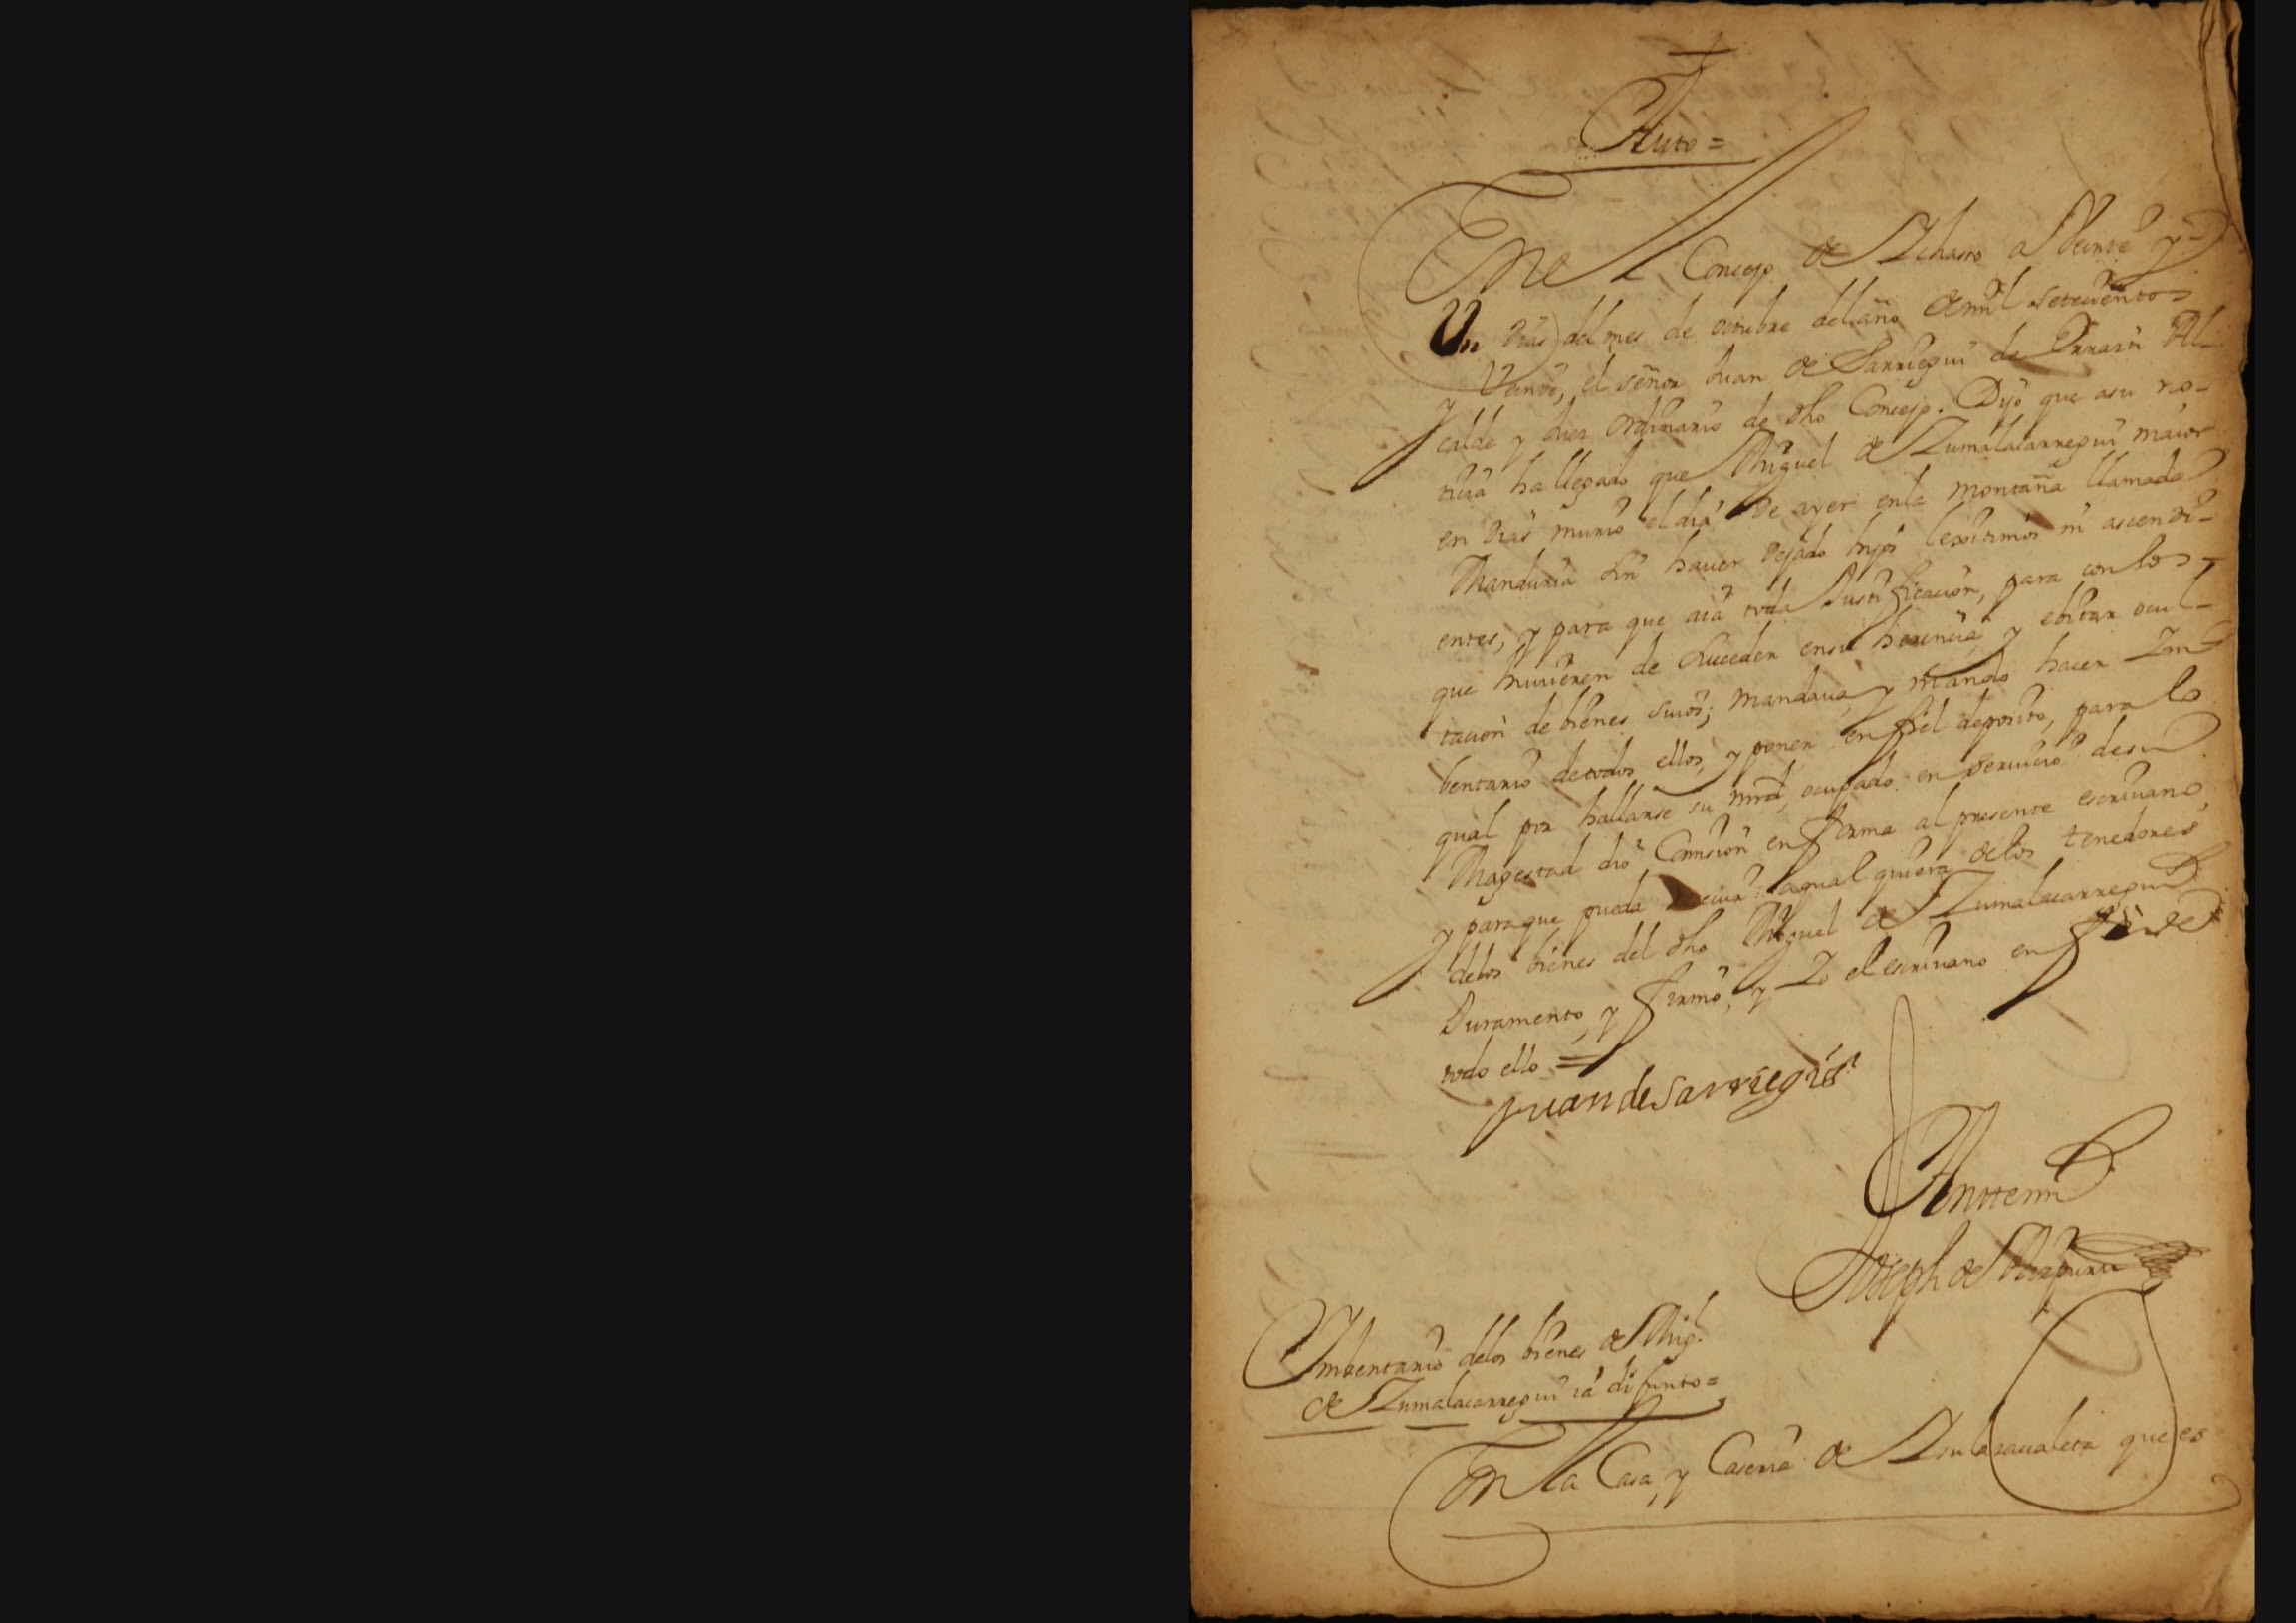 Auto =
En el Concejo de Ichaso a Veinte y
Un dias del mes de octubre del año de mil setecientos
y Veinte, el señor Juan de Sarriegui de Errasti Al-
calde y Juez ordinario de dho Concejo. Dijo que asu no-
ticia ha llegado que Miguel de Zumalacarregui maior
en dias murio el dia de ayer enla montaña llamada
Manduvia sin haver dejado hijos lexitimos ni ascendi-
entes, y para que aia toda Justificacion, para con los
que huvieren de suceder ensu herencia, y ebitar ocul-
tacion de bienes suios; mandava, y mando hacer Im-
bentario detodos ellos, y poner en fiel deposito, para lo
qual por hallarse su mrd, ocupado en servicio desu
Magestad dio Comision en forma al presente escrivano,
y paraque pueda recivir aqual quiera delos tenedores
delos bienes del dho Miguel de Zumalacarregui
Juramento, y firmo, y Yo el escrivano en fee de
todo ello =
Juan de Sarriegui
Antte mi
Joseph de
Imbentario delos bienes de Migl.
de Zumalacarregui ia difunto =
En la Casa, y Caseria de que es